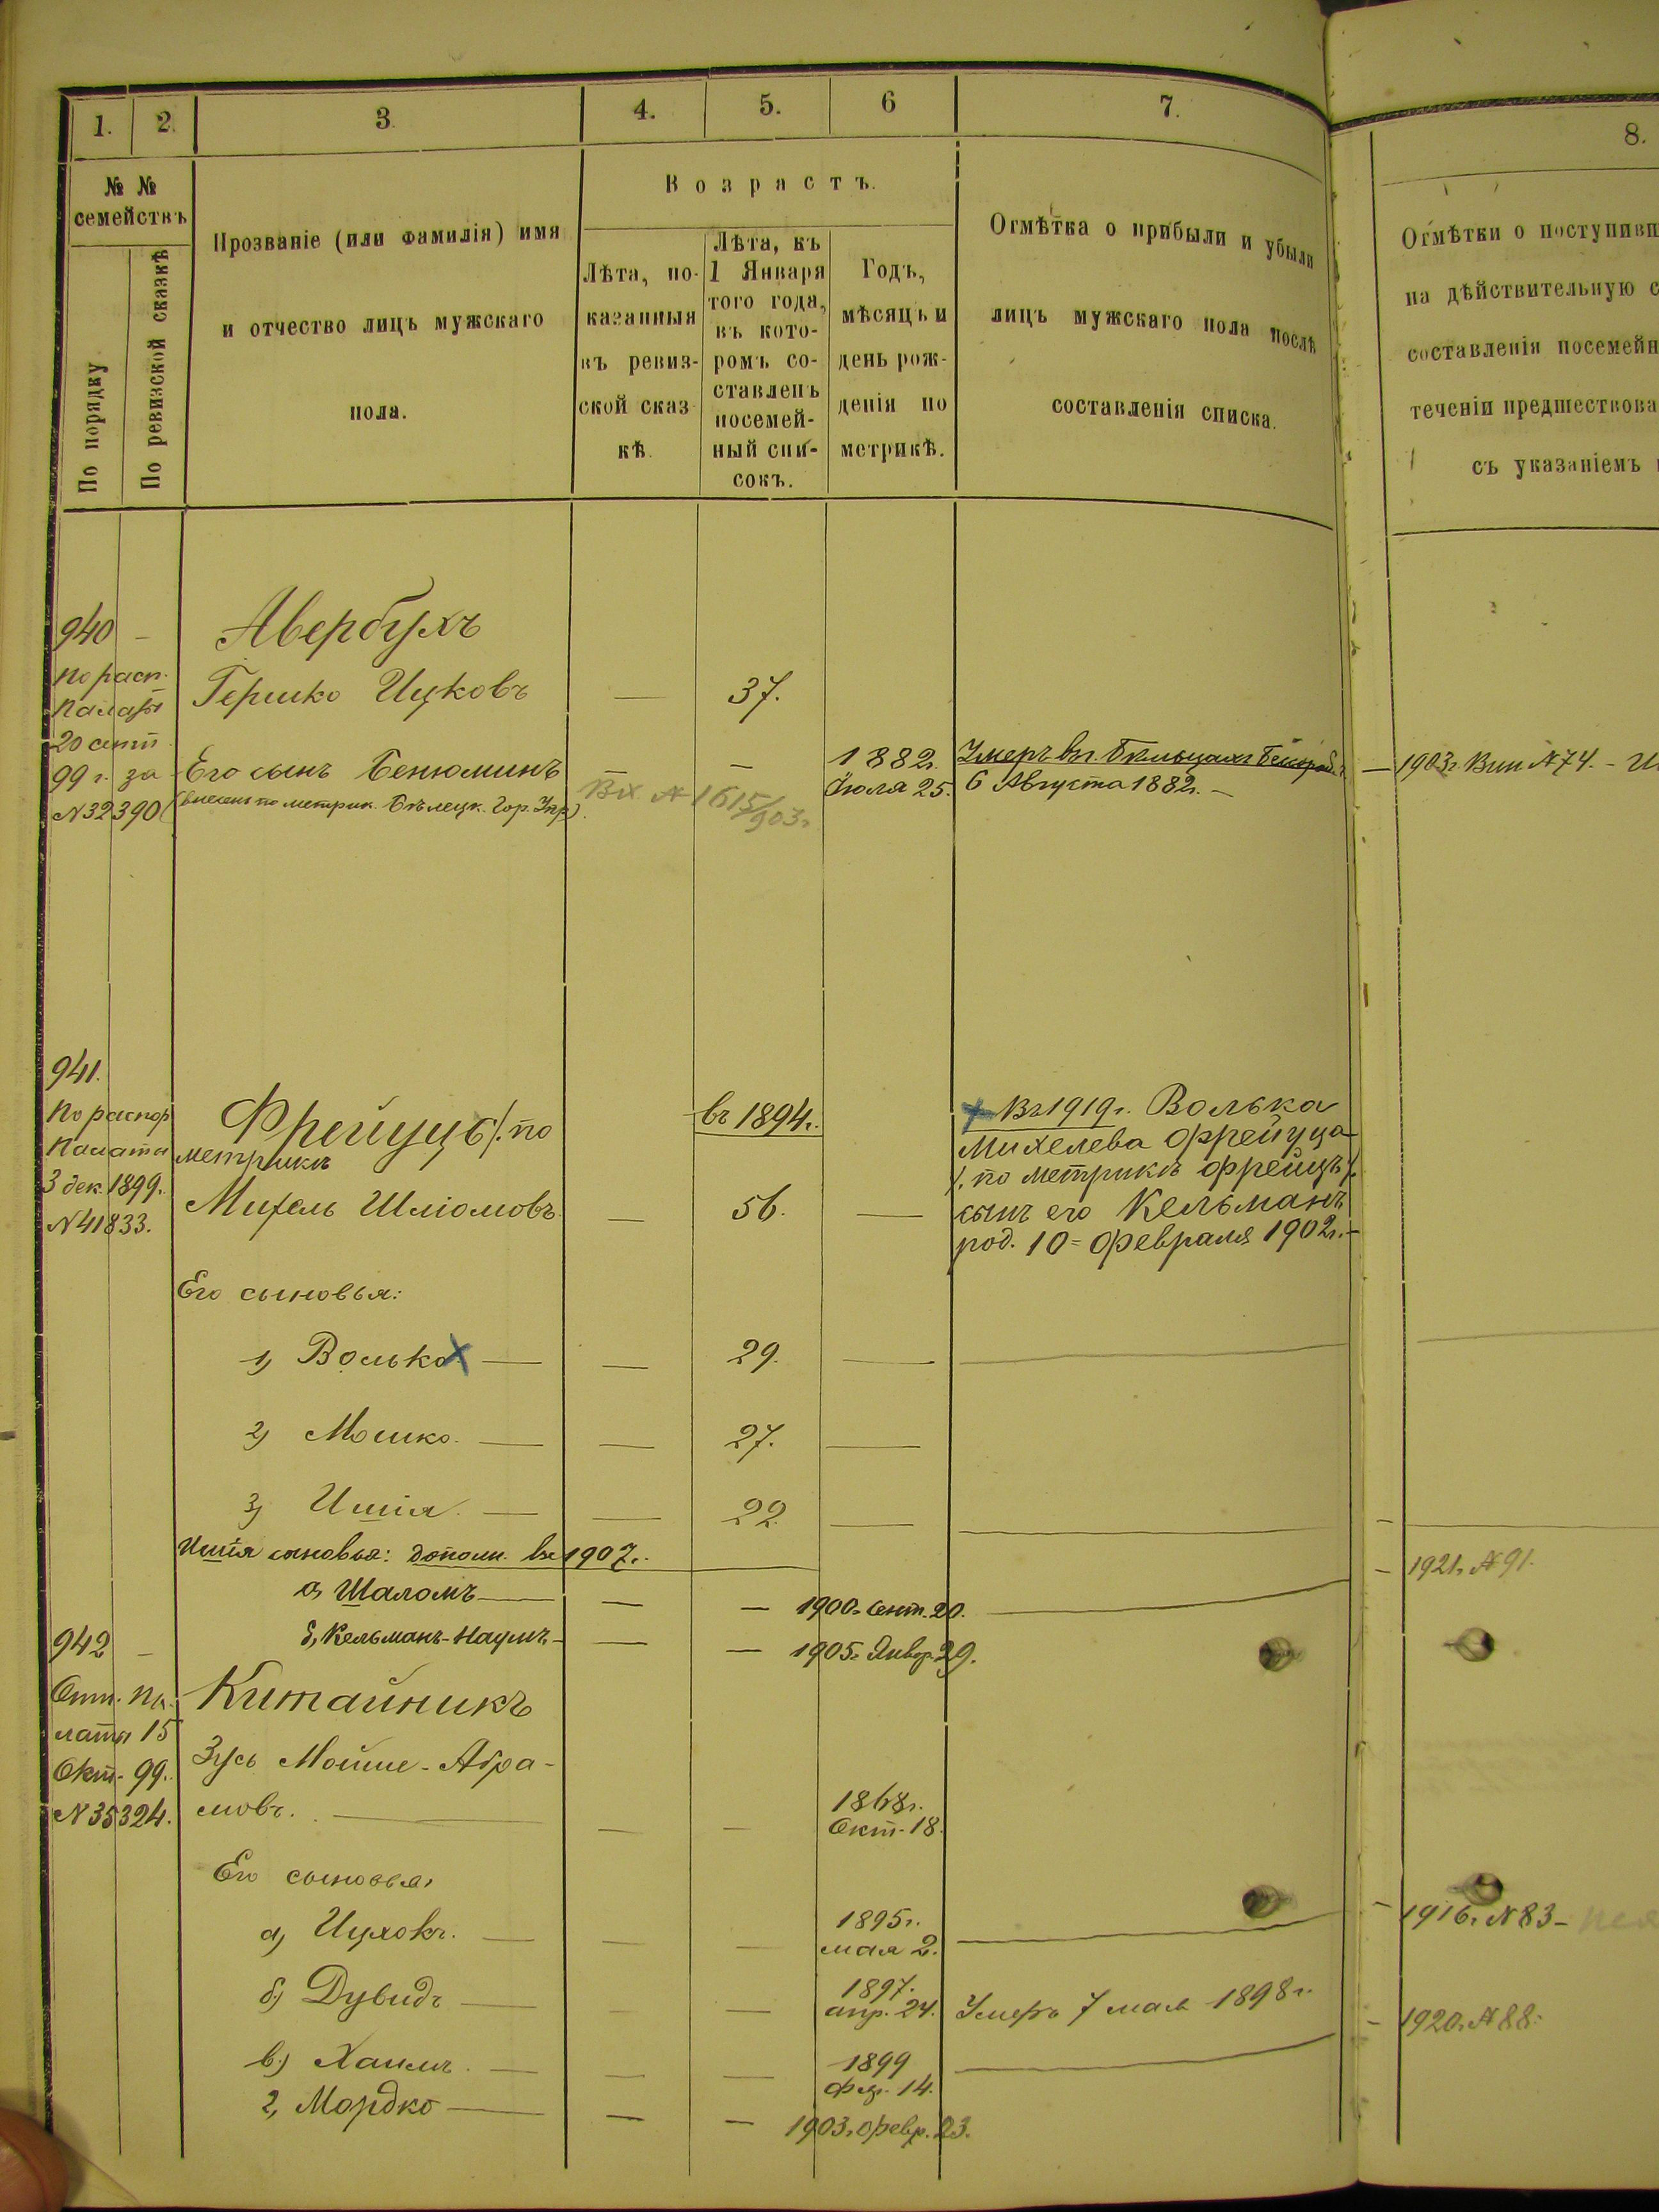 1. 2. 3. 4. 5. 6 7. 8.
№ № семействъ
По порядку
По ревизской сказкѣ
Прозваніе (или фамилія) имя
и отчество лицъ мужскаго
пола.
Возрастъ.
Лѣта, по-
казанныя
въ ревиз-
ской сказ
кѣ.
Лѣта, къ
1 Января
того года,
въ кото-
ромъ со-
ставленъ
посемей-
ный спи-
сокъ.
Годъ,
мѣсяцъ и
день рож-
денія по
метрикѣ.
Отмѣтка о прибыли и убыли
лицъ мужскаго пола послѣ
составленія списка.
Отмѣтки о поступивш
на дѣйствительную с
составленія посемейн
теченіи предшествова
съ указаніемъ
940 — Авербухъ
По расп.
Палаты
20 сент
99 г. за
№ 32390
Гершко Ицковъ — 37.
Его сынъ Бенюминъ — — 1882г. Іюля 25.
(внесенъ по метрик. Бѣлецк. Гор. Упр).
Вх № 1615/903г.
Умеръ въ г. Бѣльцахъ
6 Августа 1882г. —
— 1903г. № 74. —
941.
По распор
Палаты
3 дек. 1899г.
№ 41833.
Фрейуцъ /. по
метрикѣ
въ 1894г.
Михель Шліомовъ — 56. —
+ Въ 1919г. Волька
Михелева Фрейуца
/. по метрикѣ Фрейцъ /.
сынъ его Кельманъ
род. 10 = февраля 1902г. —
Его сыновья:
1, Волько X — — 29. —
2, Мошко. — — 27. —
3, Ишія. — — 22. —
Ишія сыновья: дополн. въ 1907г.
а, Шаломъ — — — 1900г. Сент. 20.
— 1921г. № 91.
б, Кельманъ-Наумъ — — — 1905г. Янвр. 29.
942 —
Отн. Па-
латы 15
Окт. 99г.
№ 35324.
Китайникъ
Зусь Мойше-Абра-
мовъ. — — — 1868г. Окт. 18.
Его сыновья:
а, Ицхокъ. — — — 1895г. мая 2.
— 1916г. № 83 —
б, Дувидъ — — — 1897. апр. 24. Умеръ 7 мая 1898г.
— 1920г. № 88.
в, Хаимъ. — — — 1899 14.
г, Мордко — — — 1903г. Февр. 23.